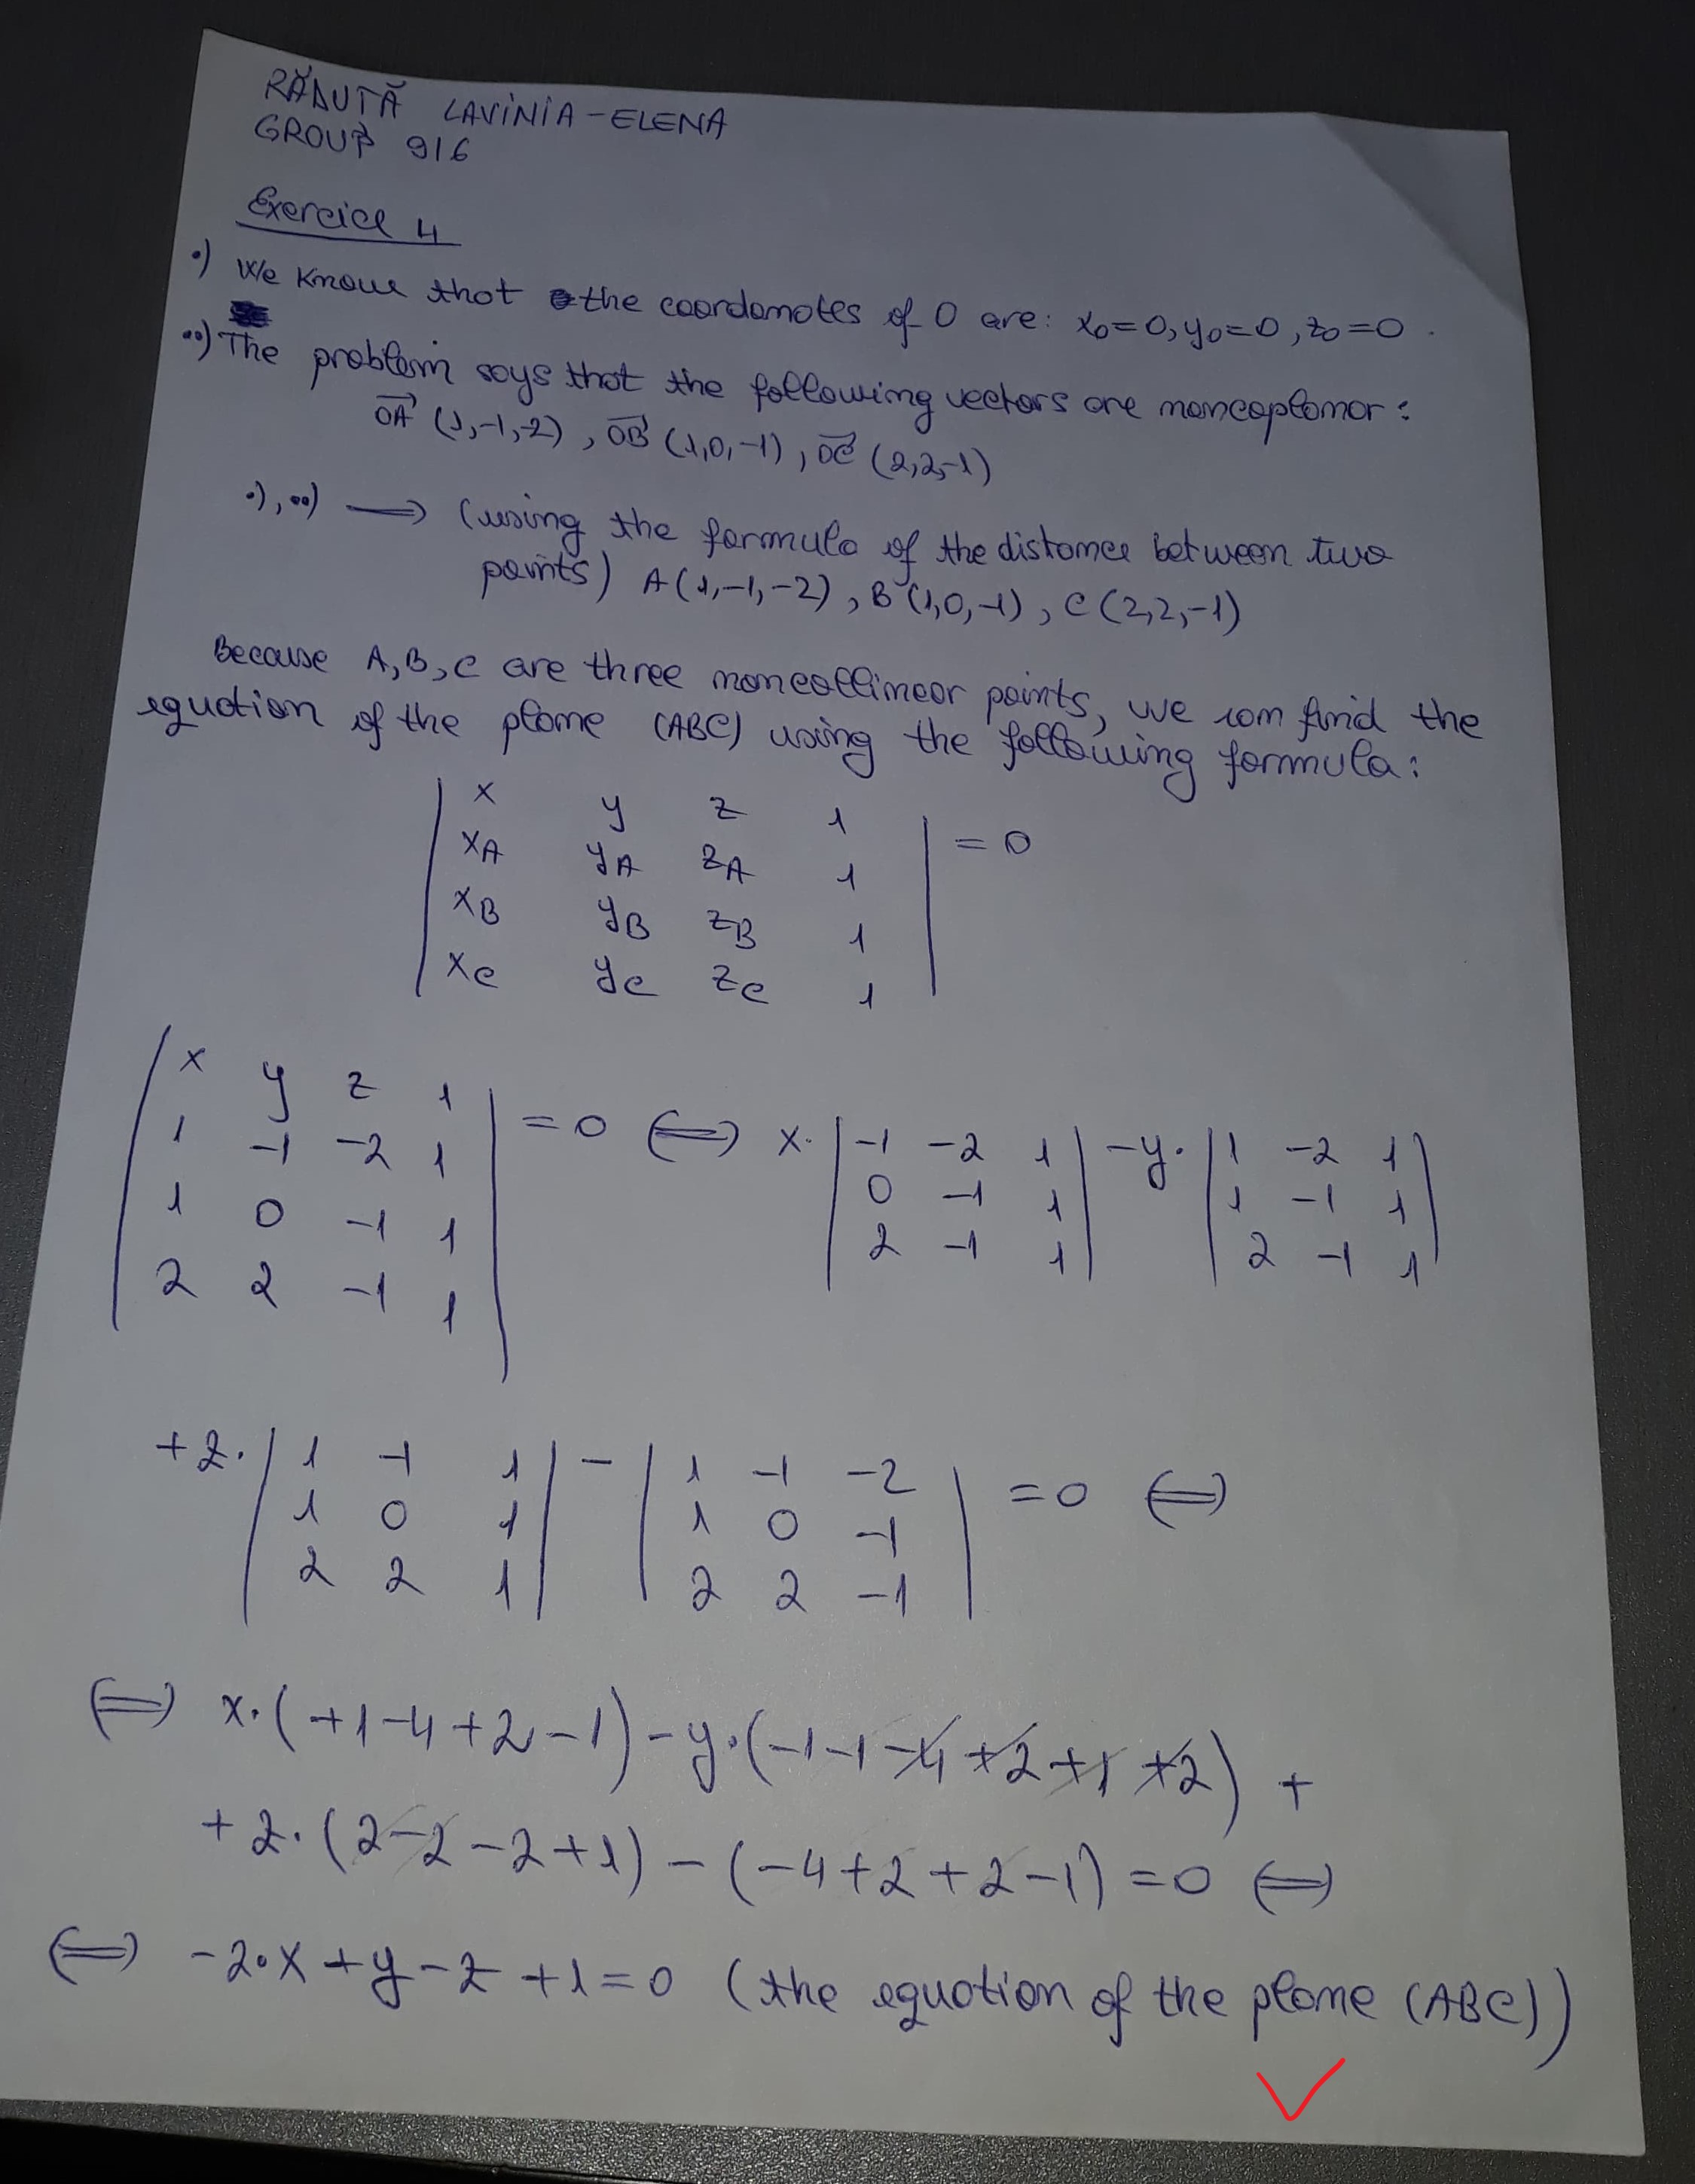 RĂDUTĂ LAVINIA-ELENA
GROUP 916
Exercice 4
•) We know that the coordonates of O are: x₀=0, y₀=0, z₀=0.
••) The problem says that the following vectors are noncoplanar:
OA (1,-1,-2), OB (1,0,-1), OC (2,2,-1)
•),••) ⟹ (using the formula of the distance between two
points) A(1,-1,-2), B(1,0,-1), C(2,2,-1)
Because A,B,C are three noncollinear points, we can find the
equation of the plane (ABC) using the following formula:
| x y z 1 |
| xA yA zA 1 | = 0
| xB yB zB 1 |
| xC yC zC 1 |
| x y z 1 |
| 1 -1 -2 1 | = 0 ⟺ x· | -1 -2 1 | -y· | 1 -2 1 |
| 1 0 -1 1 | | 0 -1 1 | | 1 -1 1 |
| 2 2 -1 1 | | 2 -1 1 | | 2 -1 1 |
+z· | 1 -1 1 | - | 1 -1 -2 | = 0 ⟺
| 1 0 1 | | 1 0 -1 |
| 2 2 1 | | 2 2 -1 |
⟺ x·(+1-4+2-1)-y·(-1-1-4+2+1+2)+
+z·(2-2-2+1)-(-4+2+2-1)=0 ⟺
⟺ -2·x+y-z+1=0 (the equation of the plane (ABC))